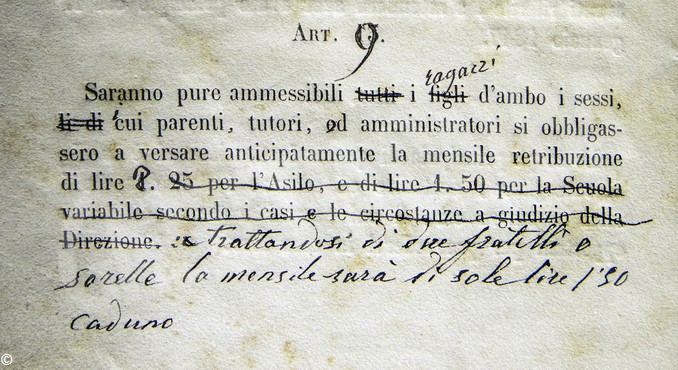 ART. 9.
ragazzi
Saranno pure ammessibili tutti i figli d'ambo i sessi,
li di i cui parenti, tutori, od amministratori si obbligas-
sero a versare anticipatamente la mensile retribuzione
di lire 2. 25 per l'Asilo, e di lire 1. 50 per la Scuola
variabile secondo i casi e le circostanze a giudizio della
Direzione. trattandosi di due fratelli o
sorelle la mensile sarà di sole lire 1'50
caduno
©